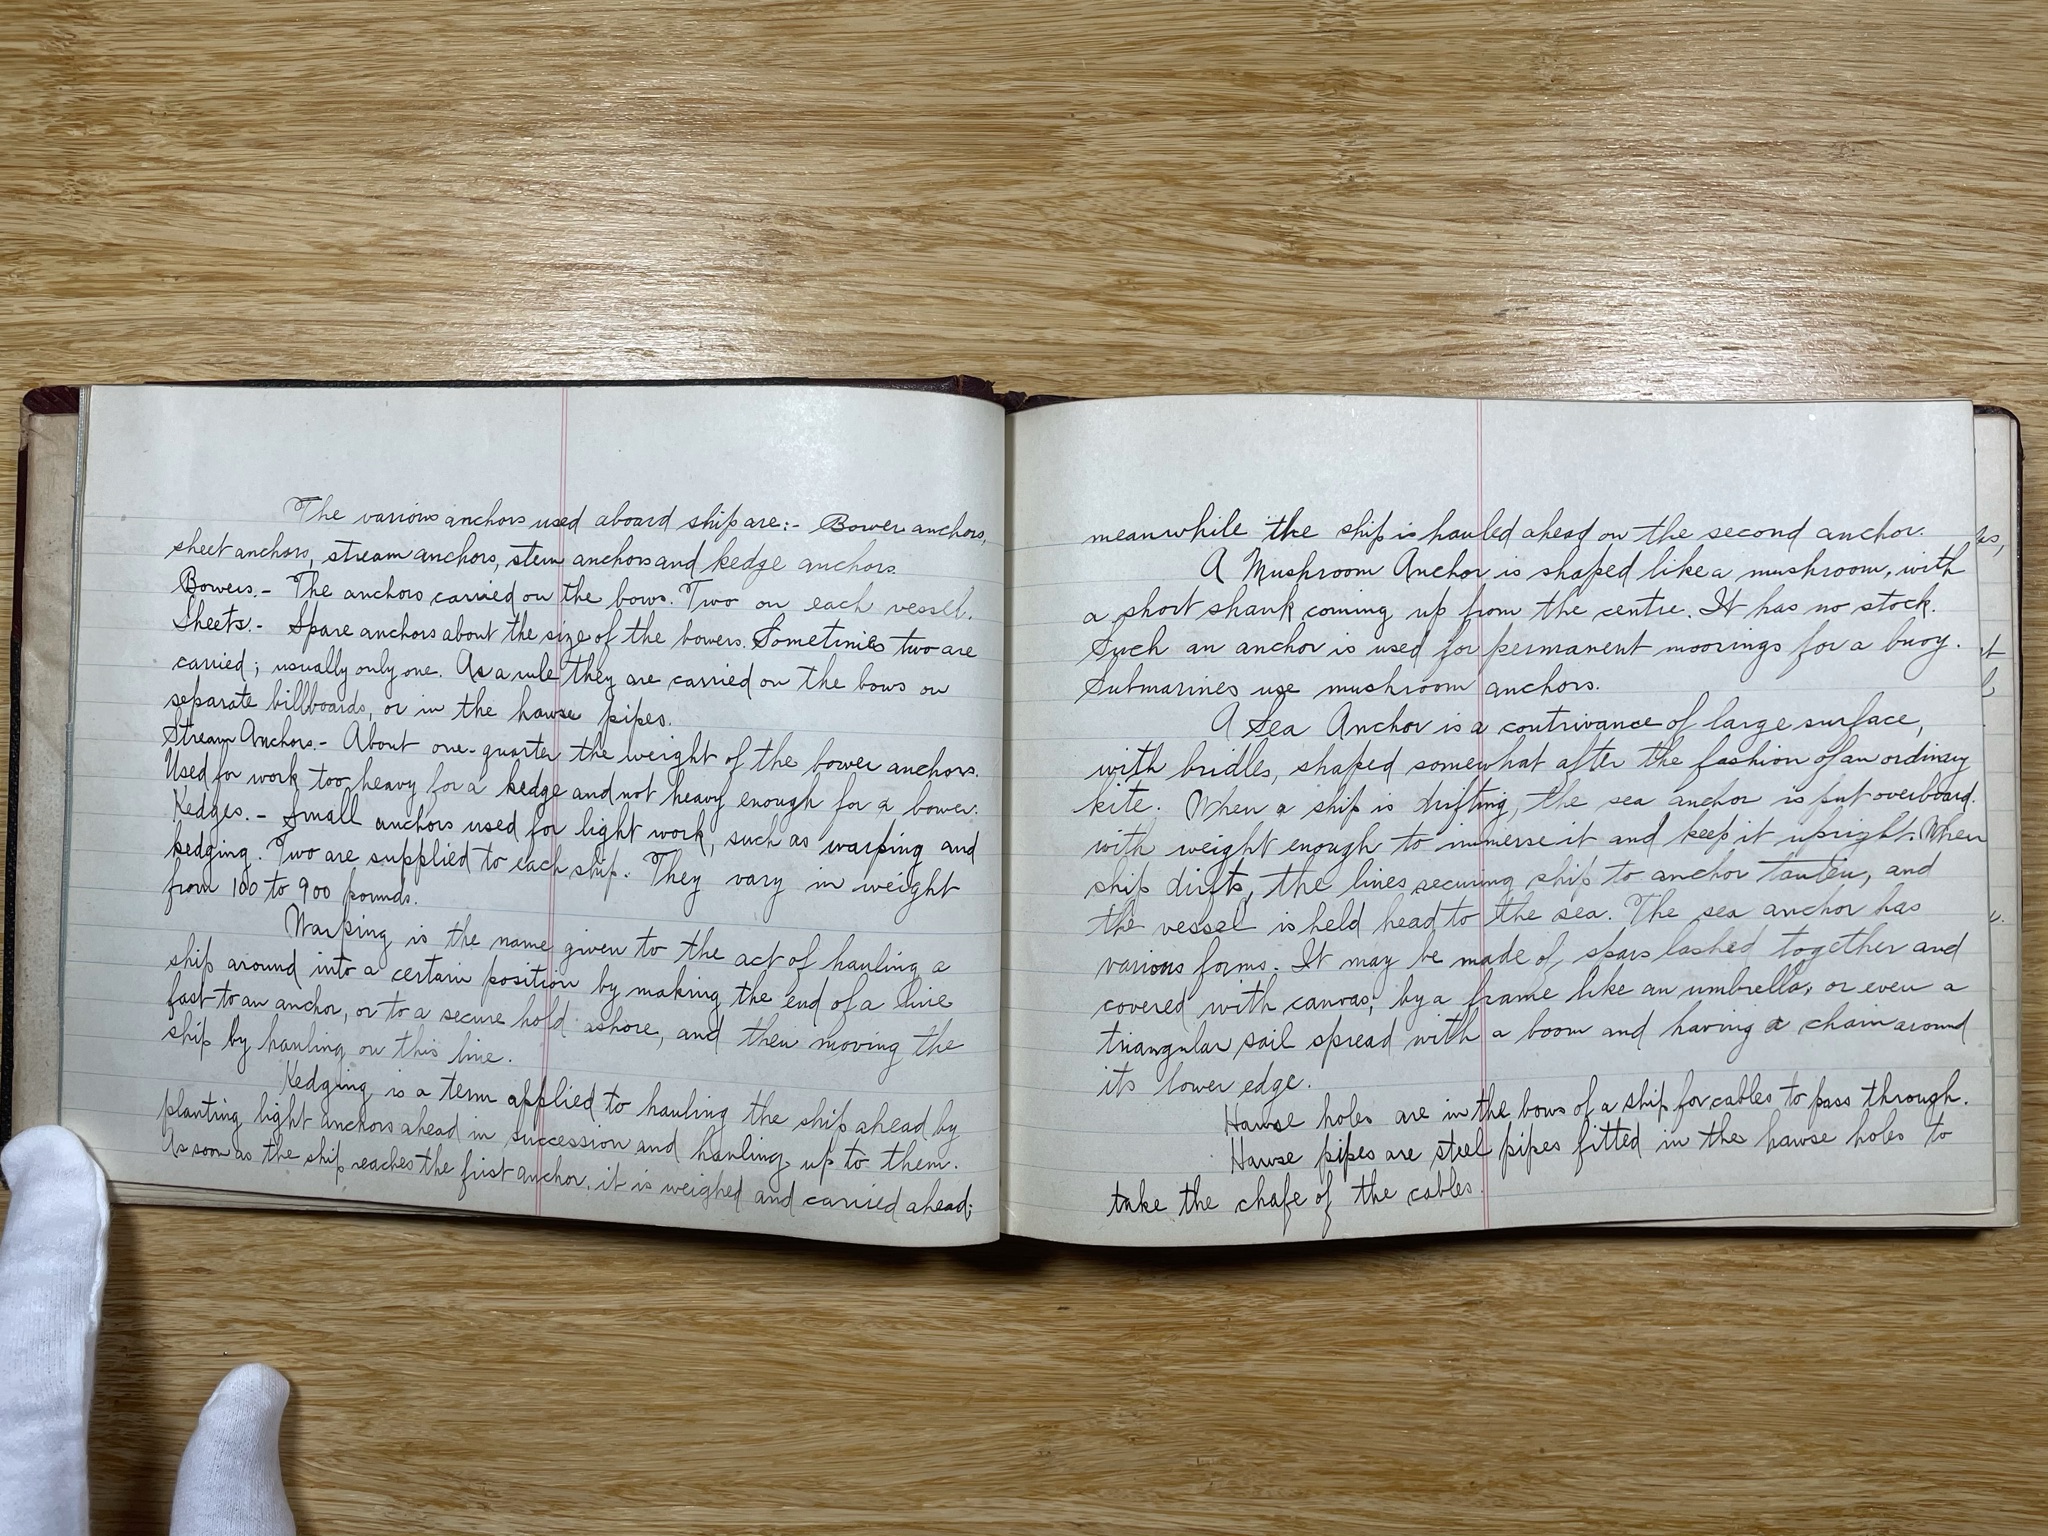 The various anchors used aboard ship are:- Bower anchors,
sheet anchors, stream anchors, stern anchors and kedge anchors.
Bowers.- The anchors carried on the bows. Two on each vessel.
Sheets.- Spare anchors about the size of the bowers. Sometimes two are
carried; usually only one. As a rule they are carried on the bows on
separate billboards, or in the hawse pipes.
Stream Anchors.- About one-quarter the weight of the bower anchors.
Used for work too heavy for a kedge and not heavy enough for a bower.
Kedges.- Small anchors used for light work, such as warping and
kedging. Two are supplied to each ship. They vary in weight
from 100 to 900 pounds.
Warping is the name given to the act of hauling a
ship around into a certain position by making the end of a line
fast to an anchor, or to a secure hold ashore, and then moving the
ship by hauling on this line.
Kedging is a term applied to hauling the ship ahead by
planting light anchors ahead in succession and hauling up to them.
As soon as the ship reaches the first anchor, it is weighed and carried ahead;
meanwhile the ship is hauled ahead on the second anchor.
A Mushroom Anchor is shaped like a mushroom, with
a short shank coming up from the centre. It has no stock.
Such an anchor is used for permanent moorings for a buoy.
Submarines use mushroom anchors.
A Sea Anchor is a contrivance of large surface,
with bridles, shaped somewhat after the fashion of an ordinary
kite. When a ship is drifting, the sea anchor is put overboard.
with weight enough to immerse it and keep it upright. When
ship drifts, the lines securing ship to anchor tauten, and
the vessel is held head to the sea. The sea anchor has
various forms. It may be made of spars lashed together and
covered with canvas; by a frame like an umbrella, or even a
triangular sail spread with a boom and having a chain around
its lower edge.
Hawse holes are in the bows of a ship for cables to pass through.
Hawse pipes are steel pipes fitted in the hawse holes to
take the chafe of the cables.